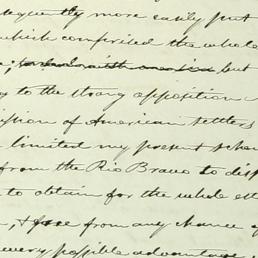 more easily put
which comprised the whole
but
to the strong opposition
of American settlers
limited my present schem
from the Rio Bravo to disp
to obtain for the whole ett
from any chance of
every possible advantage